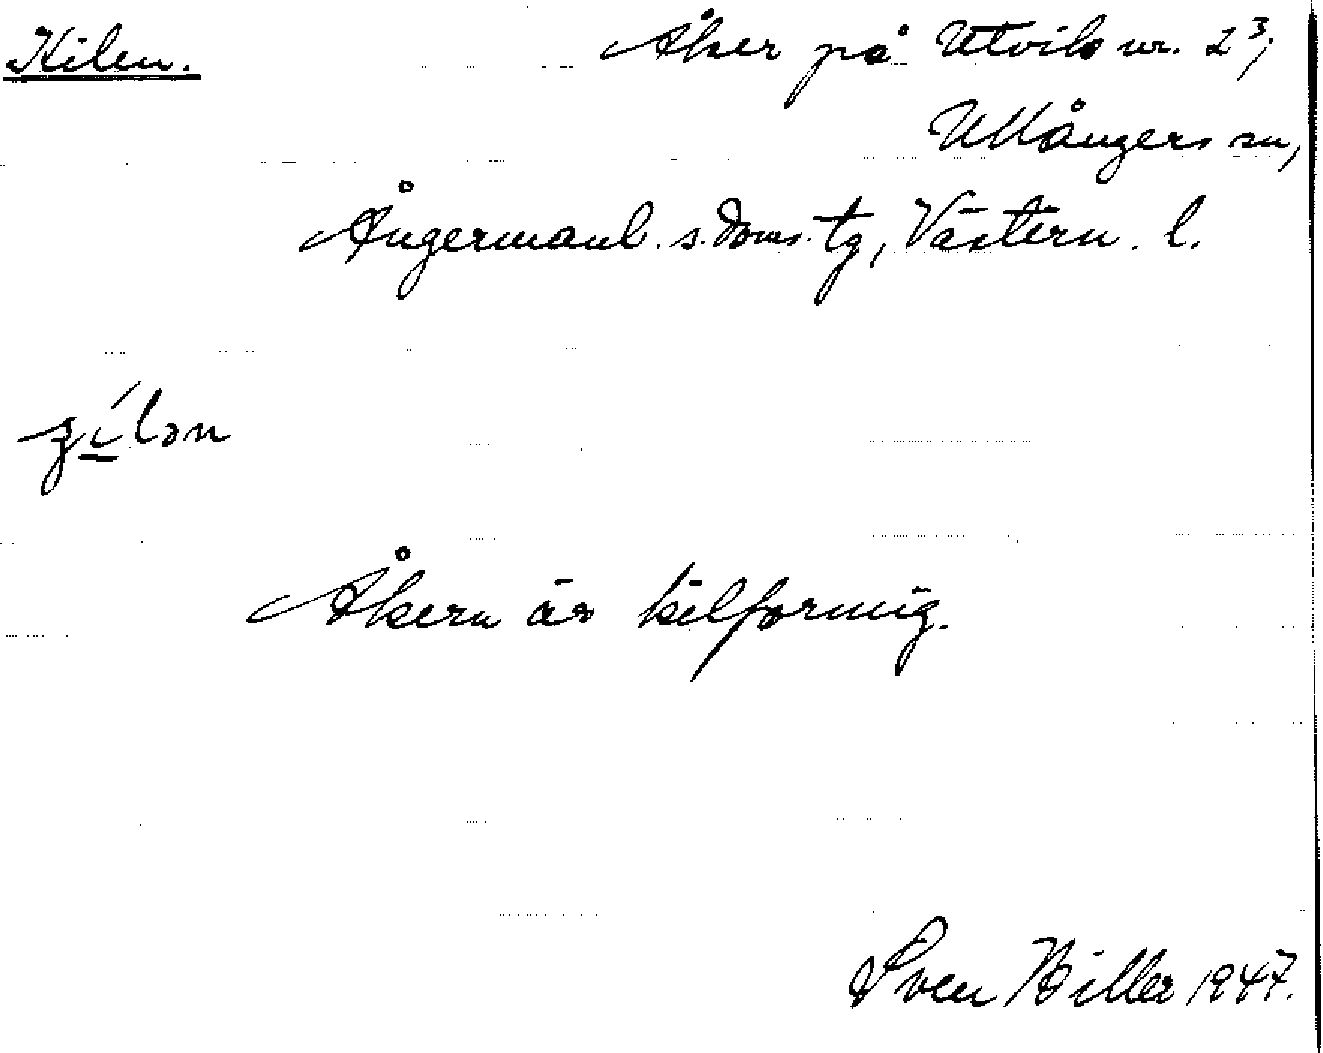 Kilen. Åker på Utvik nr. 2³,
Ullångers sn,
Ångermanl. s. doms. tg, Västern. l.
Åkern är kilformig.
Sven Biller 1947.